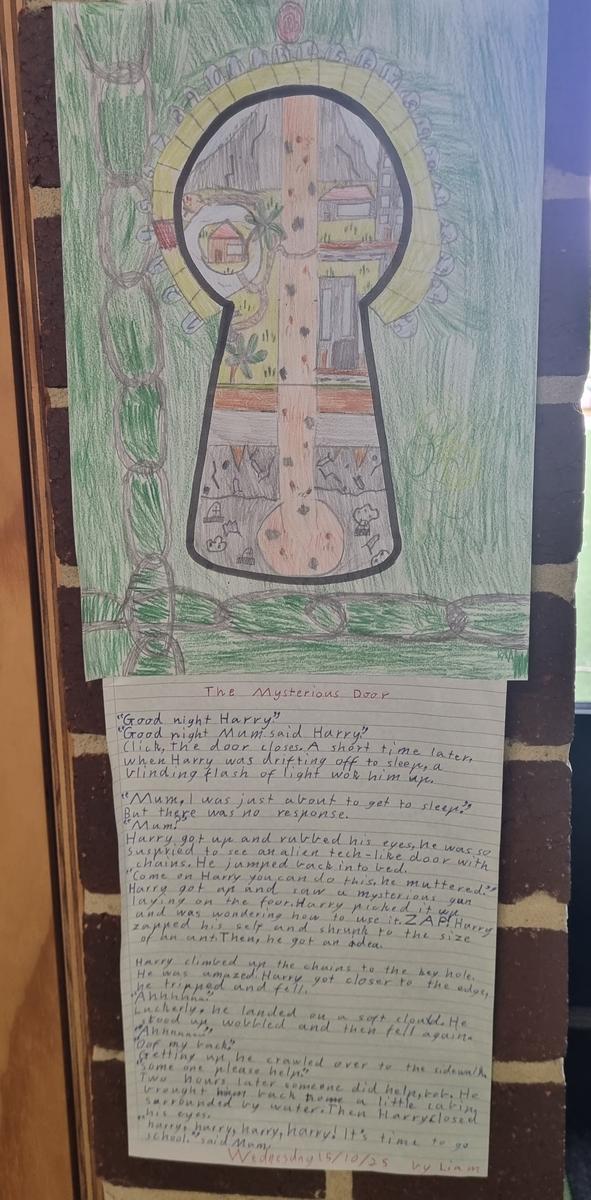 The Mysterious Door
"Good night Harry"
"Good night Mum" said Harry"
Click, the door closes. A short time later,
when Harry was drifting off to sleep, a
blinding flash of light wok him up.
"Mum, I was just about to get to sleep."
But there was no response.
"Mum."
Harry got up and rubbed his eyes, he was so
suspried to see an alien tech-like door with
chains. He jumped back into bed.
"Come on Harry you can do this, he muttered"
Harry got up and saw a mysterious gun
laying on the four. Harry picked it up
and was wondering how to use it. ZAP! Harry
zapped his self and shrunk to the size
of an ant. Then, he got an idea.
Harry climbed up the chains to the key hole.
He was amazed. Harry got closer to the edge,
he tripped and fell.
"Ahhhhhh."
Luckerly, he landed on a soft clould. He
stood up, wobbled and then fell again.
"Ahhhhhh"
"Oof my back"
Getting up, he crawled over to the sidewalk.
"Some one please help."
Two hours later someone did help, He
brought him back home a little cabin
surrounded by water. Then Harry closed
his eyes.
"harry, harry, harry, harry! It's time to go
school." said Mum.
Wednesday 15/10/25 by Liam